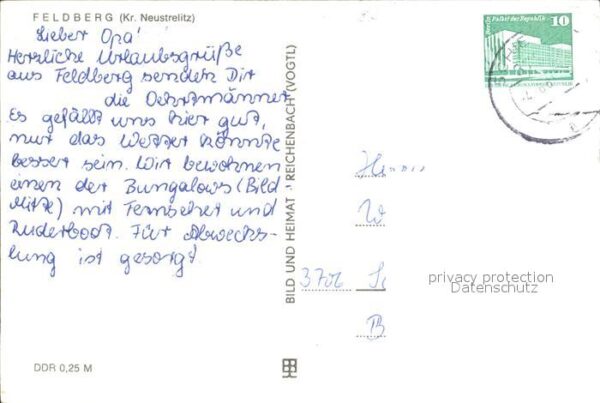 FELDBERG (Kr. Neustrelitz)
Lieber Opa!
Herzliche Urlaubsgrüße
aus Feldberg senden Dir
die
Es gefällt uns hier gut,
nur das Wetter könnte
besser sein. Wir bewohnen
einen der Bungalows (Bild
Mitte) mit Fernseher und
Ruderboot. Für Abwechs-
lung ist gesorgt.
DDR 0,25 M
BILD UND HEIMAT REICHENBACH (VOGTL)
Berlin, Palast der Republik
10
3706
privacy protection
Datenschutz